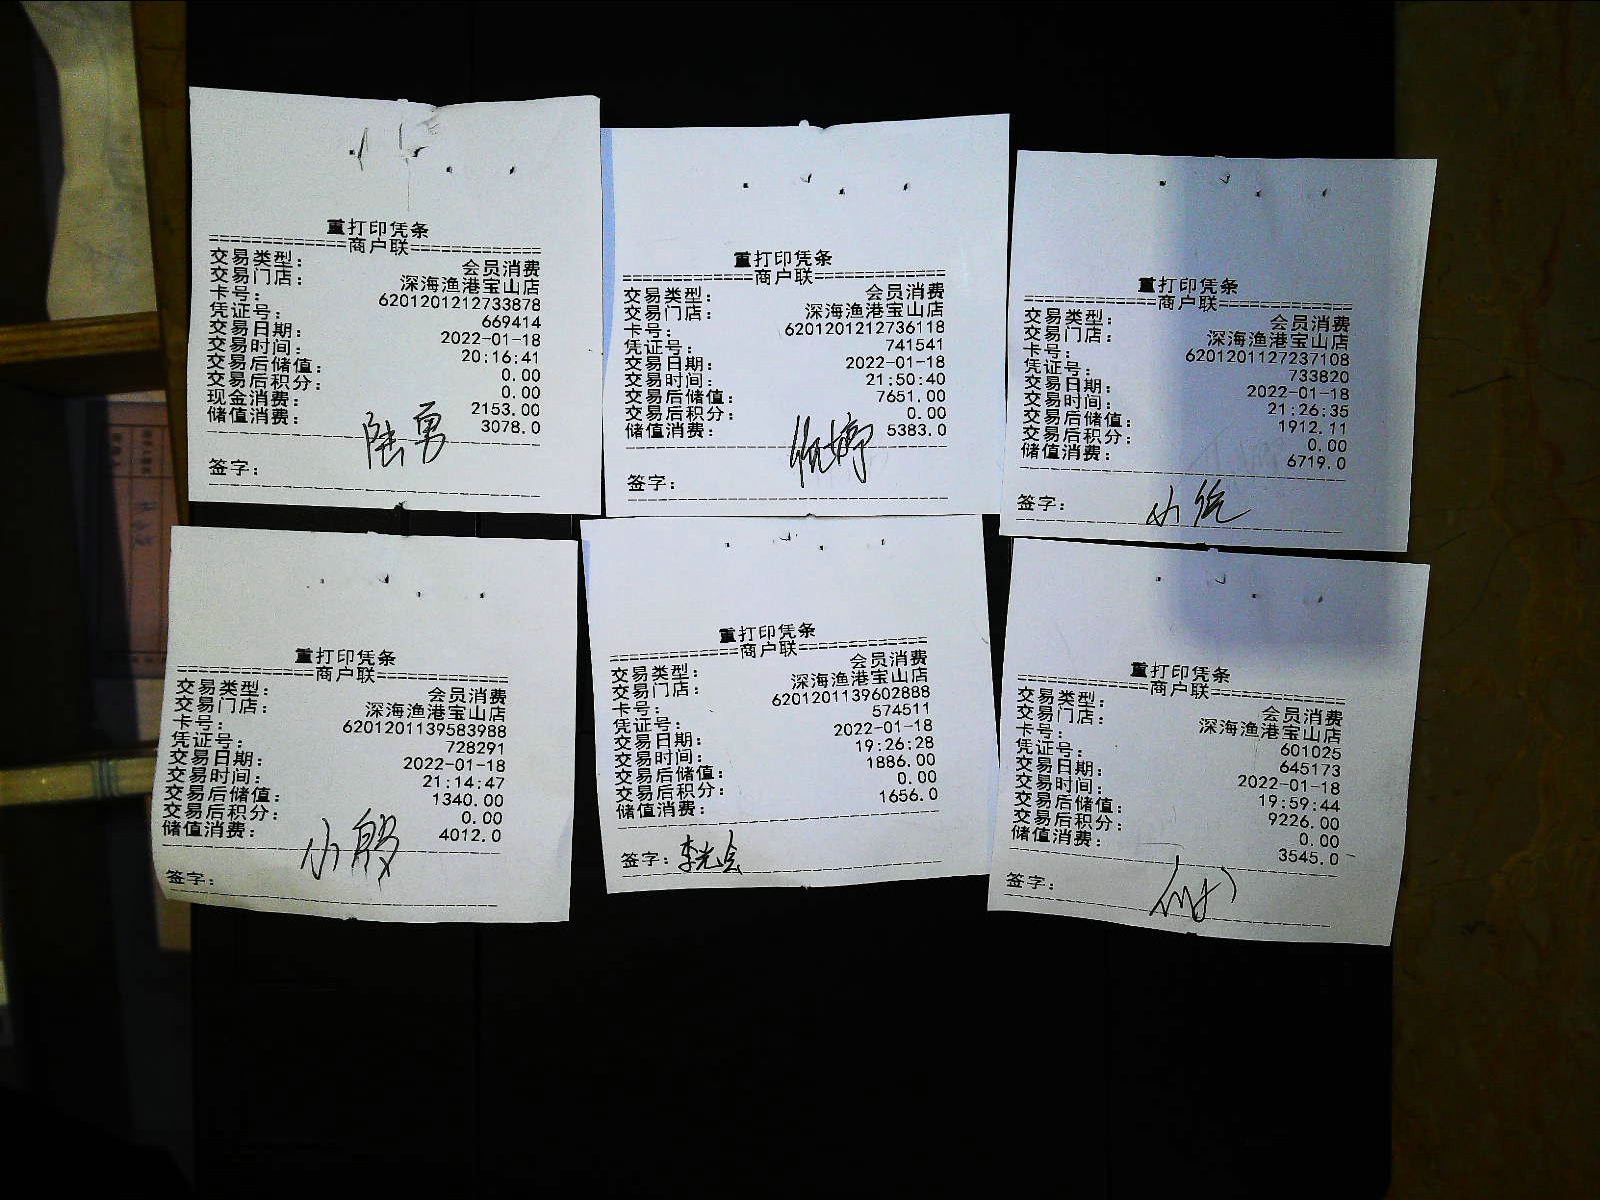 重打印凭条
==============商户联==============
交易类型： 会员消费
交易门店： 深海渔港宝山店
卡号： 6201201212733878
凭证号： 669414
交易日期： 2022-01-18
交易时间： 20:16:41
交易后储值： 0.00
交易后积分： 0.00
现金消费： 2153.00
储值消费： 3078.0
签字： 陆勇
重打印凭条
==============商户联==============
交易类型： 会员消费
交易门店： 深海渔港宝山店
卡号： 6201201212736118
凭证号： 741541
交易日期： 2022-01-18
交易时间： 21:50:40
交易后储值： 7651.00
交易后积分： 0.00
储值消费： 5383.0
签字：
重打印凭条
==============商户联==============
交易类型： 会员消费
交易门店： 深海渔港宝山店
卡号： 6201201127237108
凭证号： 733820
交易日期： 2022-01-18
交易时间： 21:26:35
交易后储值： 1912.11
交易后积分： 0.00
储值消费： 6719.0
签字：
重打印凭条
==============商户联==============
交易类型： 会员消费
交易门店： 深海渔港宝山店
卡号： 6201201139583988
凭证号： 728291
交易日期： 2022-01-18
交易时间： 21:14:47
交易后储值： 1340.00
交易后积分： 0.00
储值消费： 4012.0
签字： 小殷
重打印凭条
==============商户联==============
交易类型： 会员消费
交易门店： 深海渔港宝山店
卡号： 6201201139602888
凭证号： 574511
交易日期： 2022-01-18
交易时间： 19:26:28
交易后储值： 1886.00
交易后积分： 0.00
储值消费： 1656.0
签字： 李光会
重打印凭条
==============商户联==============
交易类型： 会员消费
交易门店： 深海渔港宝山店
卡号： 601025
凭证号： 645173
交易日期： 2022-01-18
交易时间： 19:59:44
交易后储值： 9226.00
交易后积分： 0.00
储值消费： 3545.0
签字：